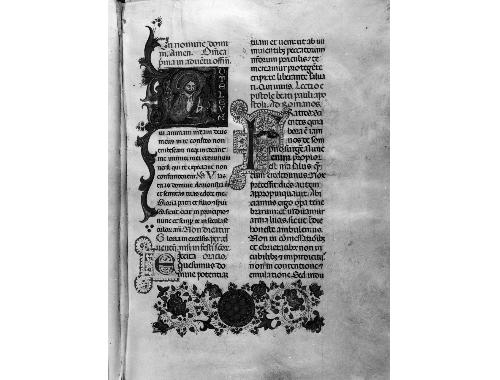 In nomine domi
ni. Amen. Dnica
pma in adventu offm
D TE LEVA
vi animam meam deus
meus in te confido non
erubescam neq irrideant
me inimici mei etenim
si qui te expectant non
confundentur. Vias
tuas domine demonstra m
et semitas tuas edoce me
Gloria patri et filio et spui
sco sicut erat in principio
nunc et semp et in secula se
culor am. Non dicatur
Gloria in excelsis per ad
ventum nisi in festis
Excita oratio
quesumus do
mine potentiam
tuam et veni ut ab im
minentibus peccatorum
nostrorum periculis te
mereamur protegente
eripi te liberante salua
ri. Qui vivis. Lectio e
pistole beati pauli apo
stoli. ad Romanos.
Fratres sci
entes quia
hora e iam
nos de som
no surgere. Nunc
enim propior
est nra salus q
cum credidimus. Nox
precessit dies autem
appropinquavit. Abi
ciamus ergo opera tene
brarum et induamur
arma lucis. sicut in die
honeste ambulemus.
Non in comessationibus
et ebrietatibus non in
cubilibus et impudicitiis
non in contentione et
emulatione. Sed indu